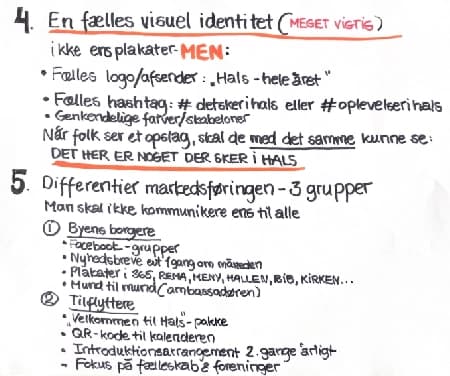 4. En fælles visuel identitet (MEGET VIGTIG)
ikke ens plakater - MEN:
• Fælles logo/afsender: „Hals - hele året"
• Fælles hashtag: # detskerihals eller #oplevelserihals
• Genkendelige farver/skabeloner
Når folk ser et opslag, skal de med det samme kunne se:
DET HER ER NOGET DER SKER i HALS
5. Differentier markedsføringen - 3 grupper
Man skal ikke kommunikere ens til alle
① Byens borgere
• Facebook-grupper
• Nyhedsbreve evt 1 gang om måneden
• Plakater i 365, REMA, MENY, HALLEN, BIB, KIRKEN...
• Mund til mund (ambassadøren)
② Tilflyttere
• „Velkommen til Hals"-pakke
• QR-kode til kalenderen
• Introduktionsarrangement 2. gange årligt
- Fokus på fælleskab & foreninger